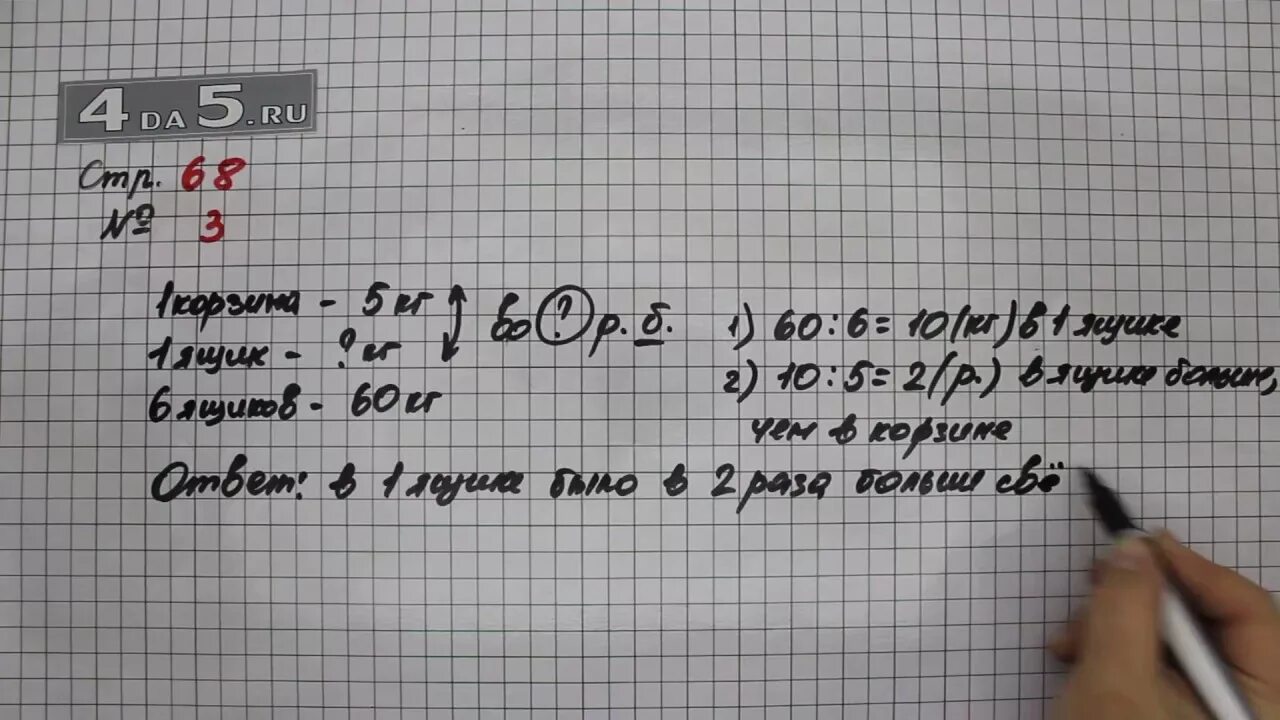 4DA5.RU
Стр. 68
№ 3
1 корзина - 5 кг
1 ящик - ? кг
6 ящиков - 60 кг
во ? р. б.
1) 60 : 6 = 10 (кг) в 1 ящике
2) 10 : 5 = 2 (р.) в ящике больше,
чем в корзине
Ответ: в 1 ящике было в 2 раза больше свё